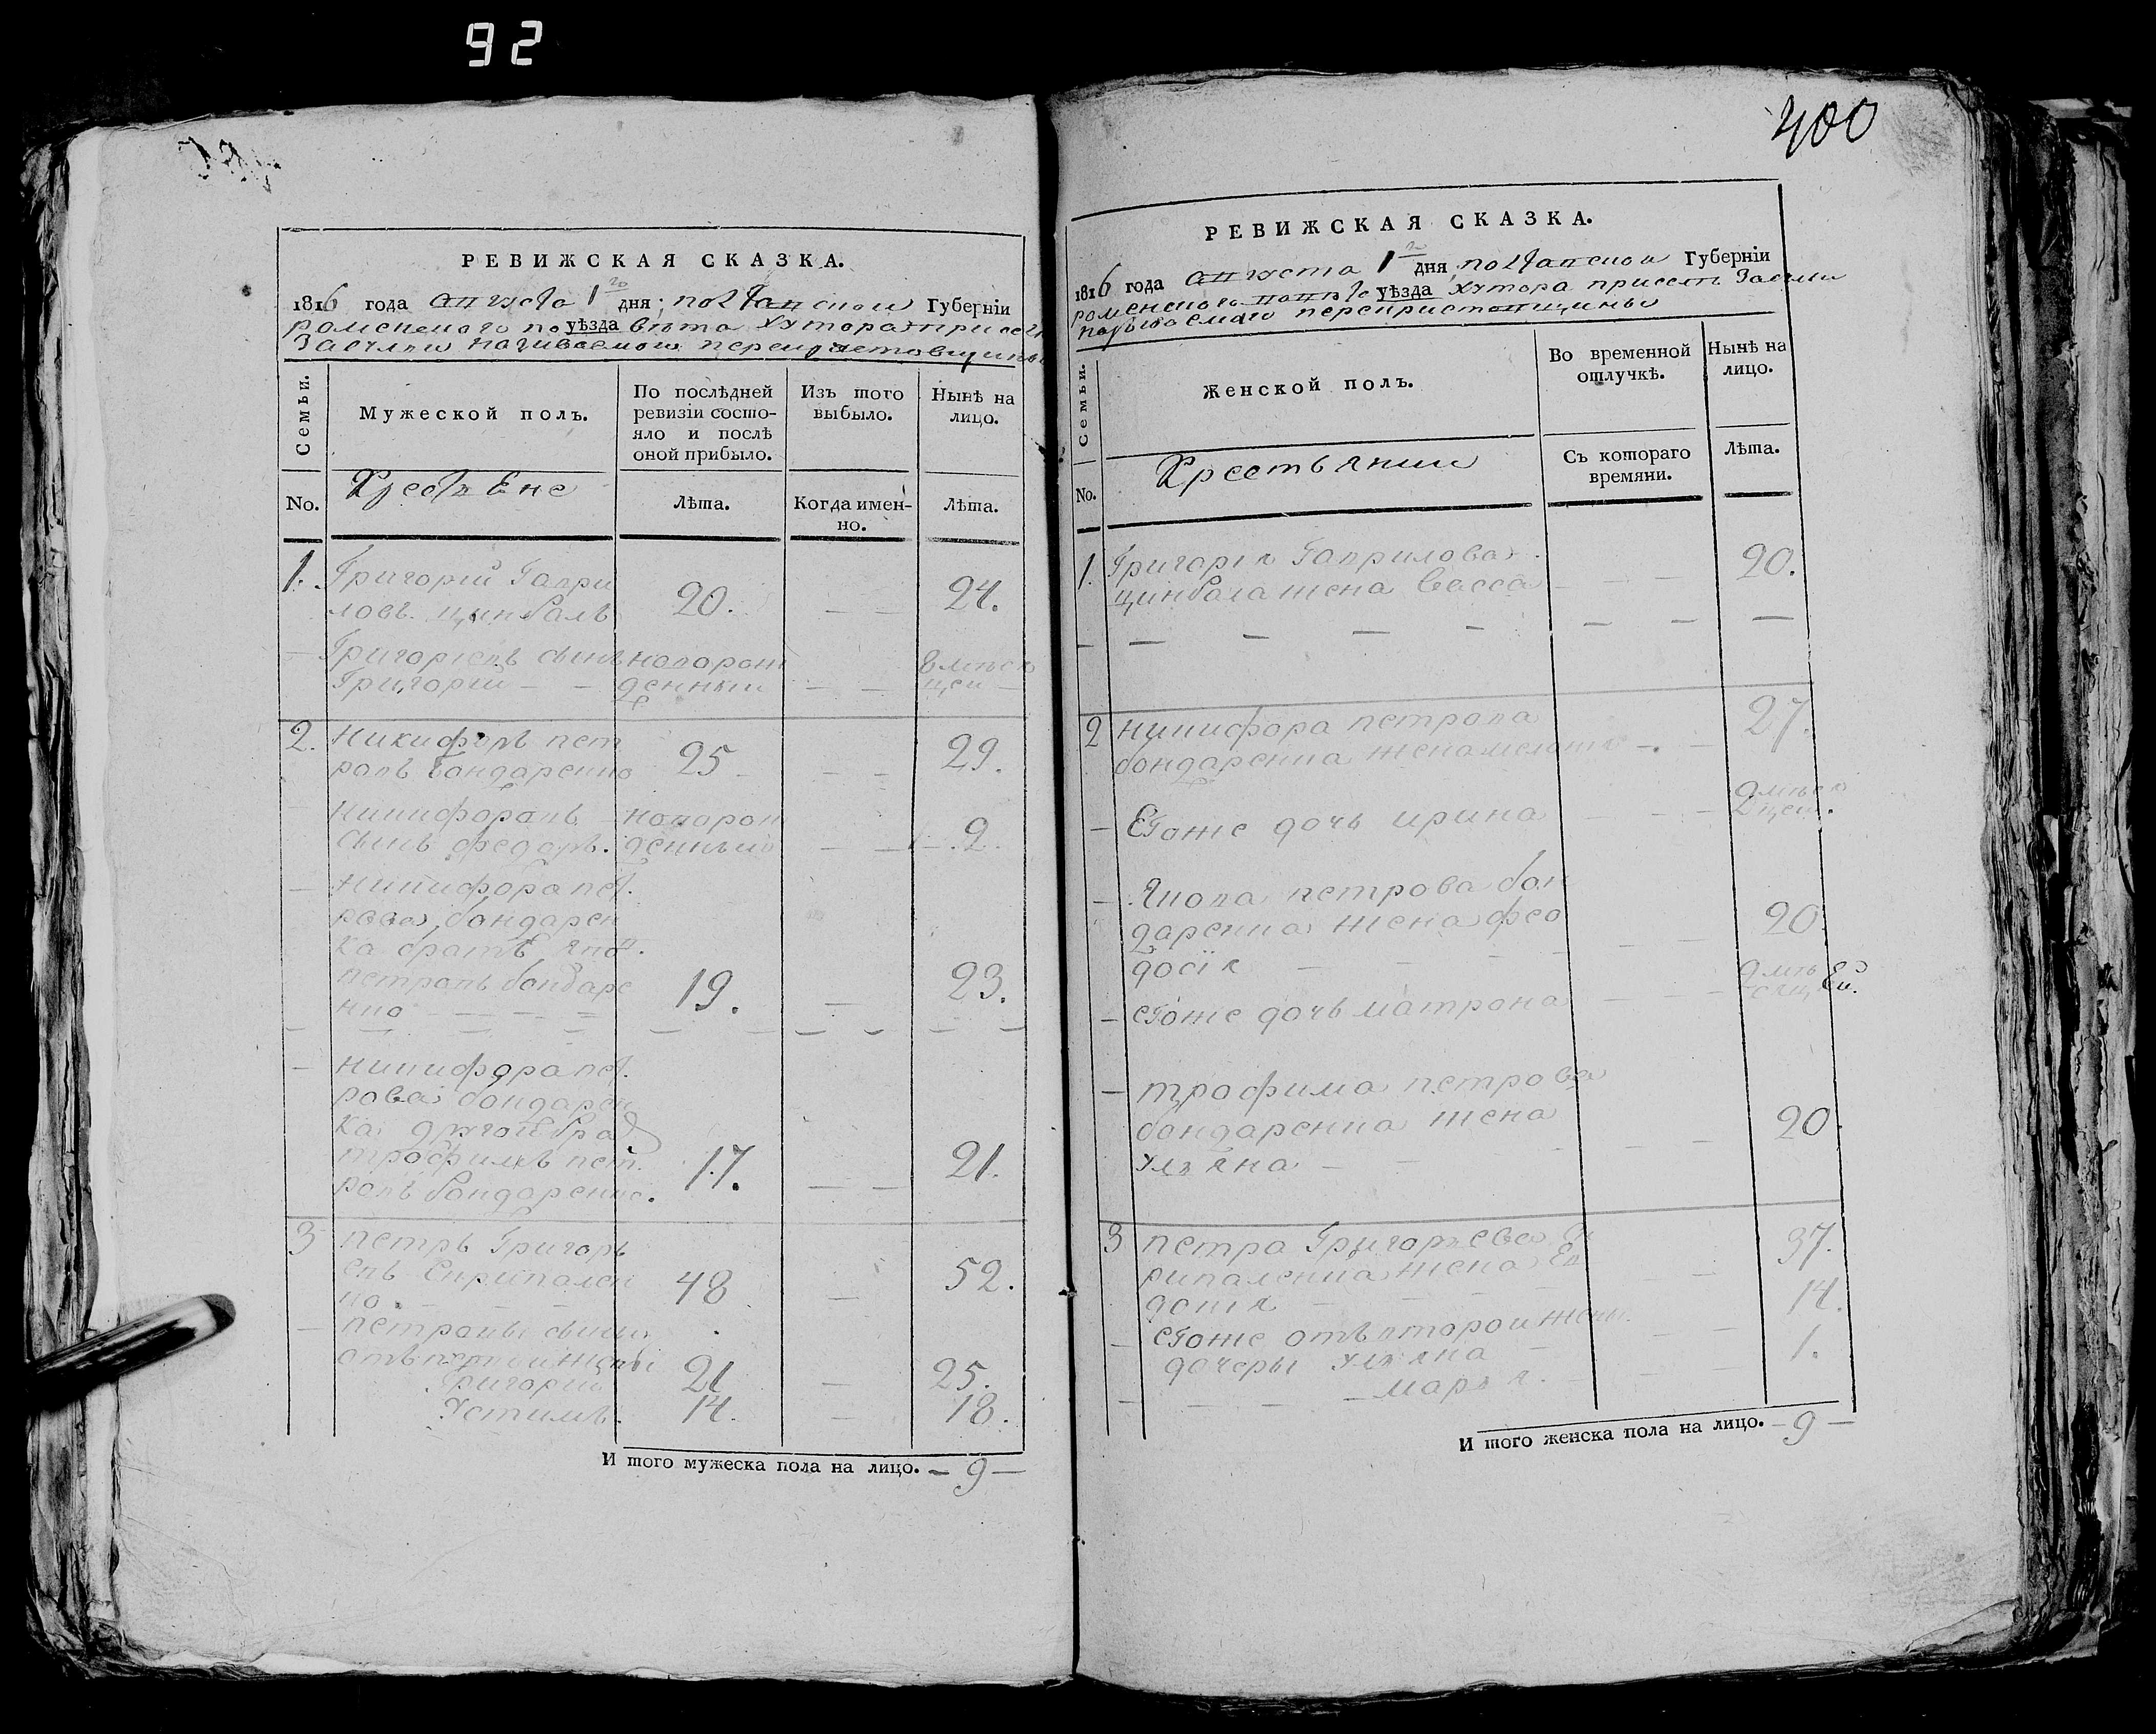 92
400
РЕВИЖСКАЯ СКАЗКА.
1816 года августа 1го дня; полтавской Губерніи
роменского по уѣзда вѣта хутора присел
Засулли называемой перехристовщины
Семьи.
Мужеской полъ.
По послѣдней
ревизіи состо-
яло и послѣ
оной прибыло.
Изъ того
выбыло.
Нынѣ на
лицо.
No.
Крестьяне
Лѣта.
Когда имен-
но.
Лѣта.
1. Григорий Гаври
ловъ цинбалъ 20. — — 24.
— Григориевъ сынъ новорож 8 мѣся
Григорий — — денный — — цей —
2. Никифоръ пет
ровъ бондаренко 25 — — — 29.
Никифоровъ новорож
сынъ федоръ. денный — — — 2.
— Никифора пет.
рова бондарен
ка братъ яков.
петровъ бондаре
нко — — — 19. — 23.
— Никифора пет.
рова бондарен
ка другой брат
трофимъ пет.
ровъ бондаренко. 17. — — 21.
3 петръ Григорь
евъ Скрипален
ко. — — — 48 — 52.
— петровы сыны
отъ первой жены
Григорий 21 — 25.
Устимъ. 14. — 18.
И того мужеска пола на лицо. — 9 —
РЕВИЖСКАЯ СКАЗКА.
1816 года августа 1го дня, полтавской Губерніи
роменского повѣта уѣзда хутора присель Засулли
называемого перехристовщины
Семьи.
Женской полъ.
Во временной
отлучкѣ.
Нынѣ на
лицо.
No.
Крестьянки
Съ котораго
времяни.
Лѣта.
1. Григория Гаврилова
цинбала жена Васса — — — 20.
— — — — — — — —
2 никифора петрова 27.
бондаренка жена — . —
— Егоже дочь ирина — — — 9 мѣся
цей.
— Якова петрова бон
даренка жена фео 20.
досія — — — — —
— егоже дочь матрона — — — 9 мѣ
сяцей.
— трофима петрова
бондаренка жена 20.
Ульяна — — — — —
3 петра Григорьева Ск
рипаленка жена Ев — — 37.
докия — — — —
— егоже отъ второй жены 14.
дочеры Ульяна — — —
— — — — марья. — — — 1.
И того женска пола на лицо. — 9 —